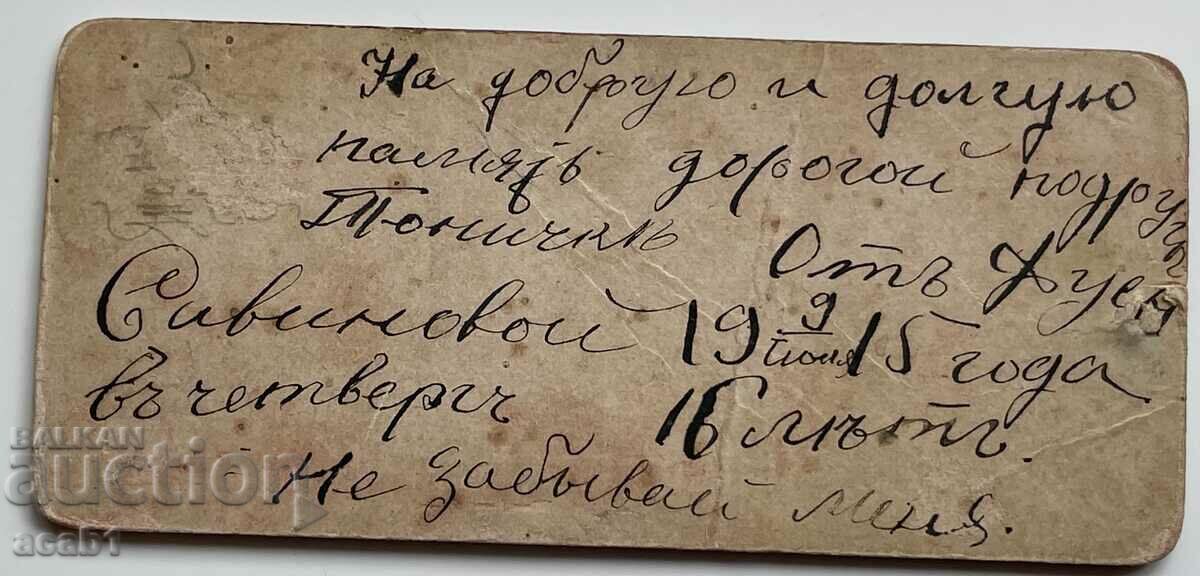 На добрую и долгую
память дорогой подруги
Тоничкѣ Отъ Фуси
Савиновой 19 9/июля 15 года
въ четвергъ 16 лѣтъ.
Не забывай меня.
BALKAN
auction
acab1